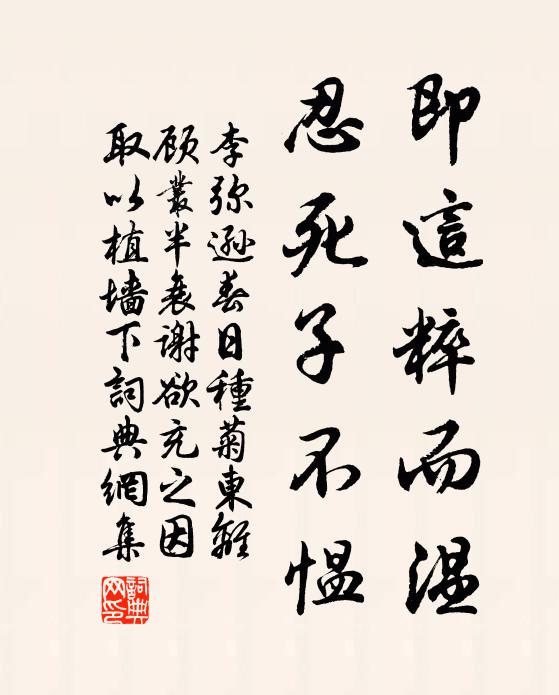 即這粹而温
忍死子不愠
李弥遜春日種菊東籬
顾叢半衰谢欲充之因
取以植墙下詞典網集
詞典网印